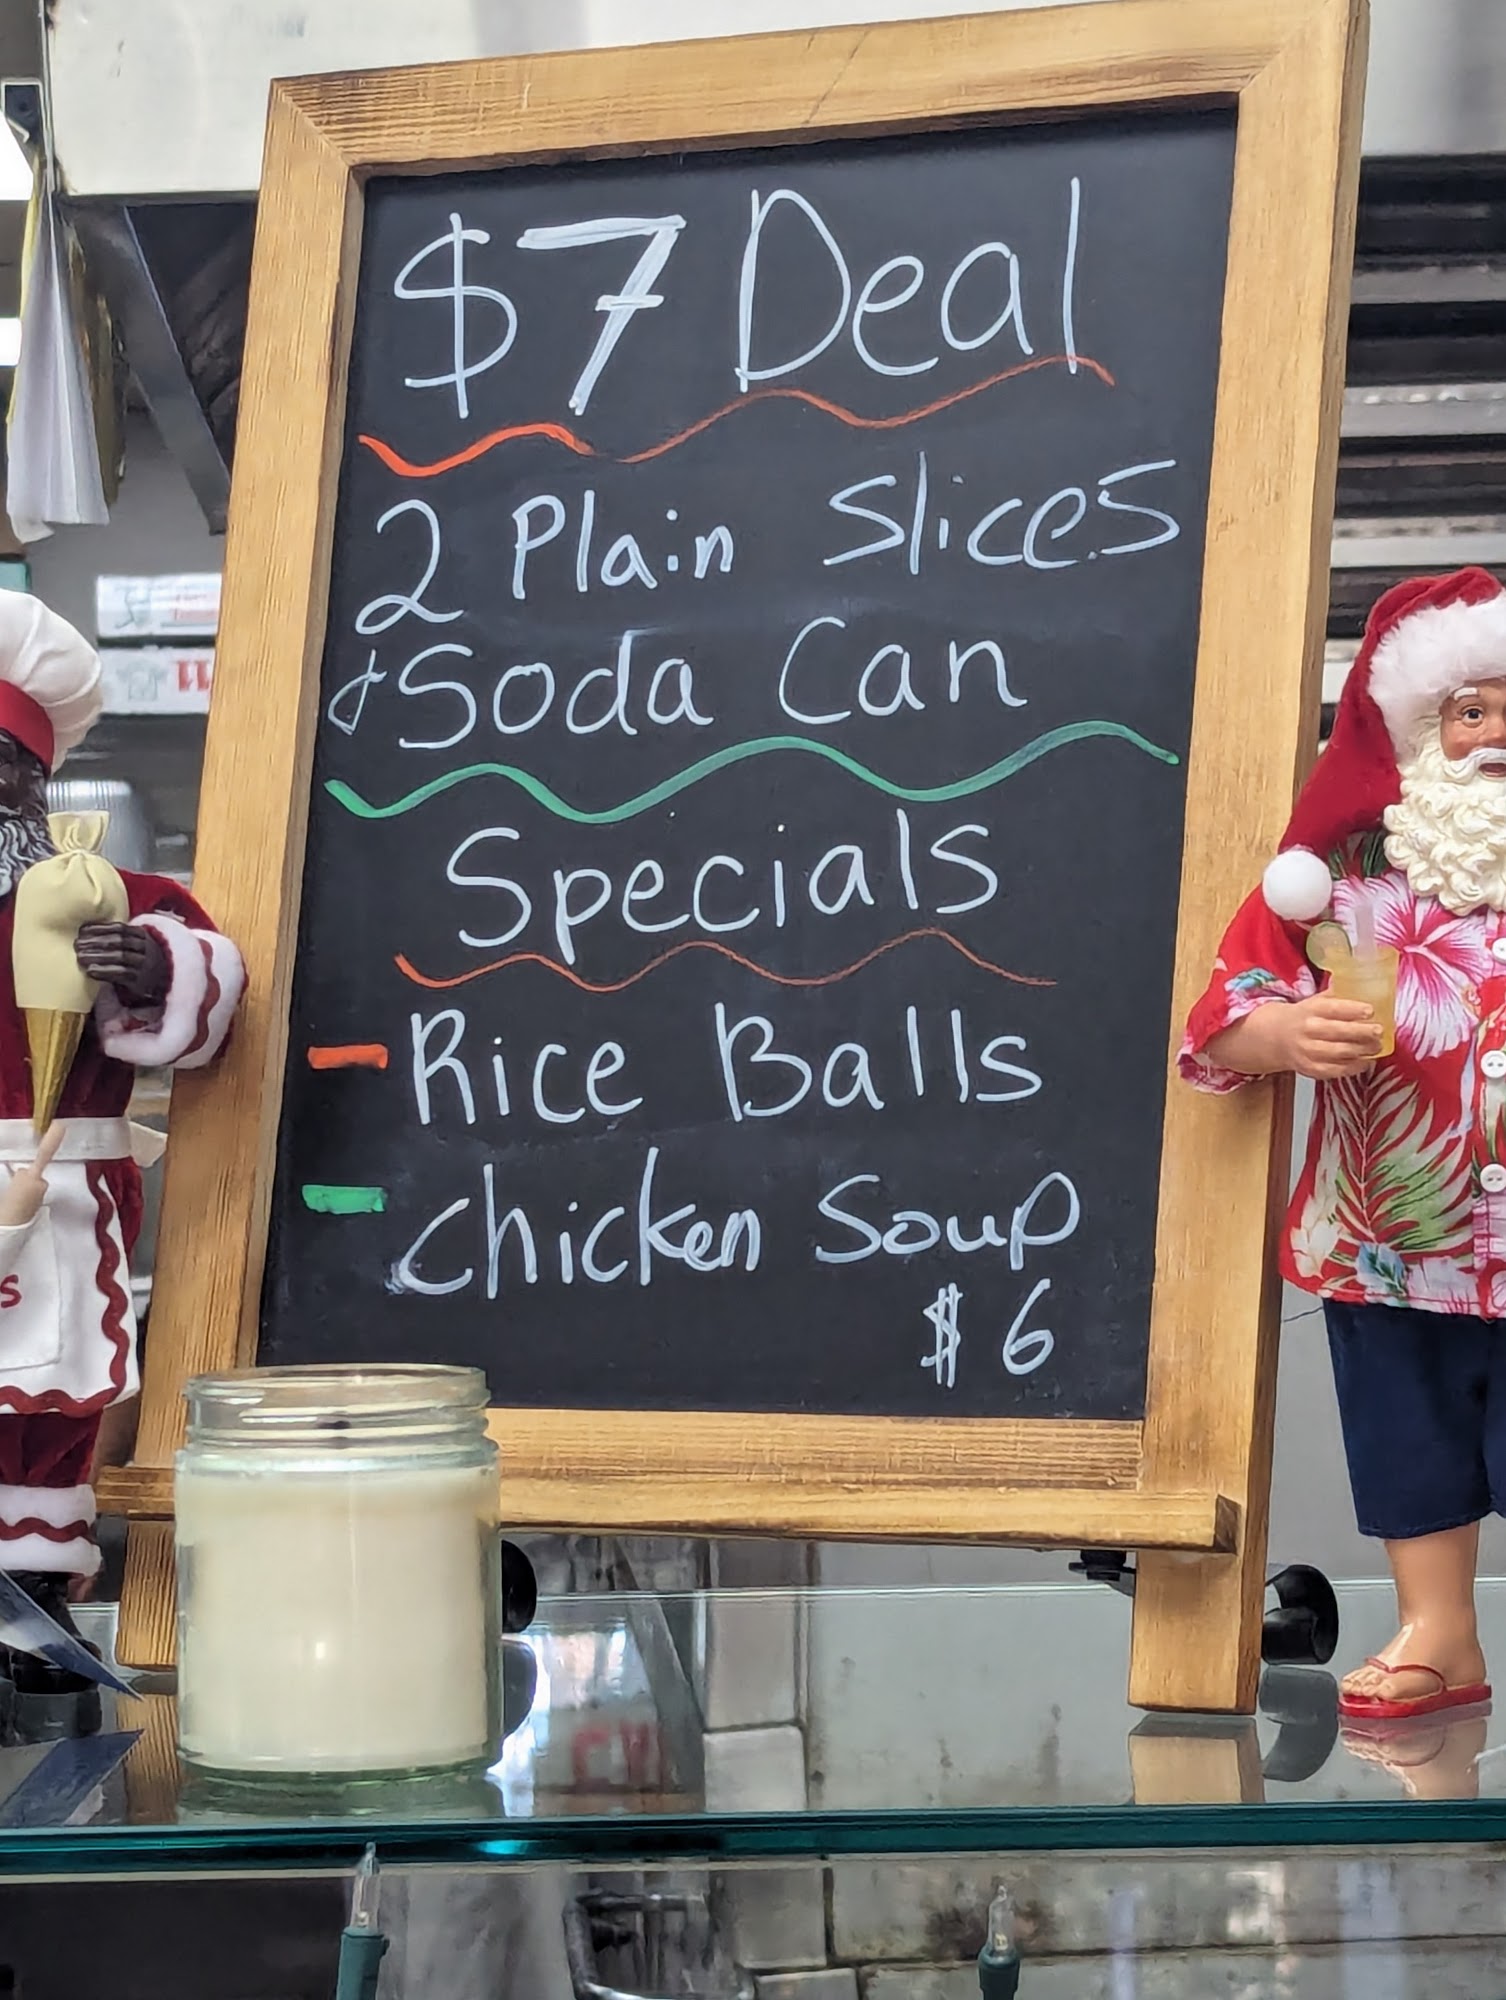 $7 Deal
2 Plain Slices
& Soda Can
Specials
- Rice Balls
- Chicken Soup
$6